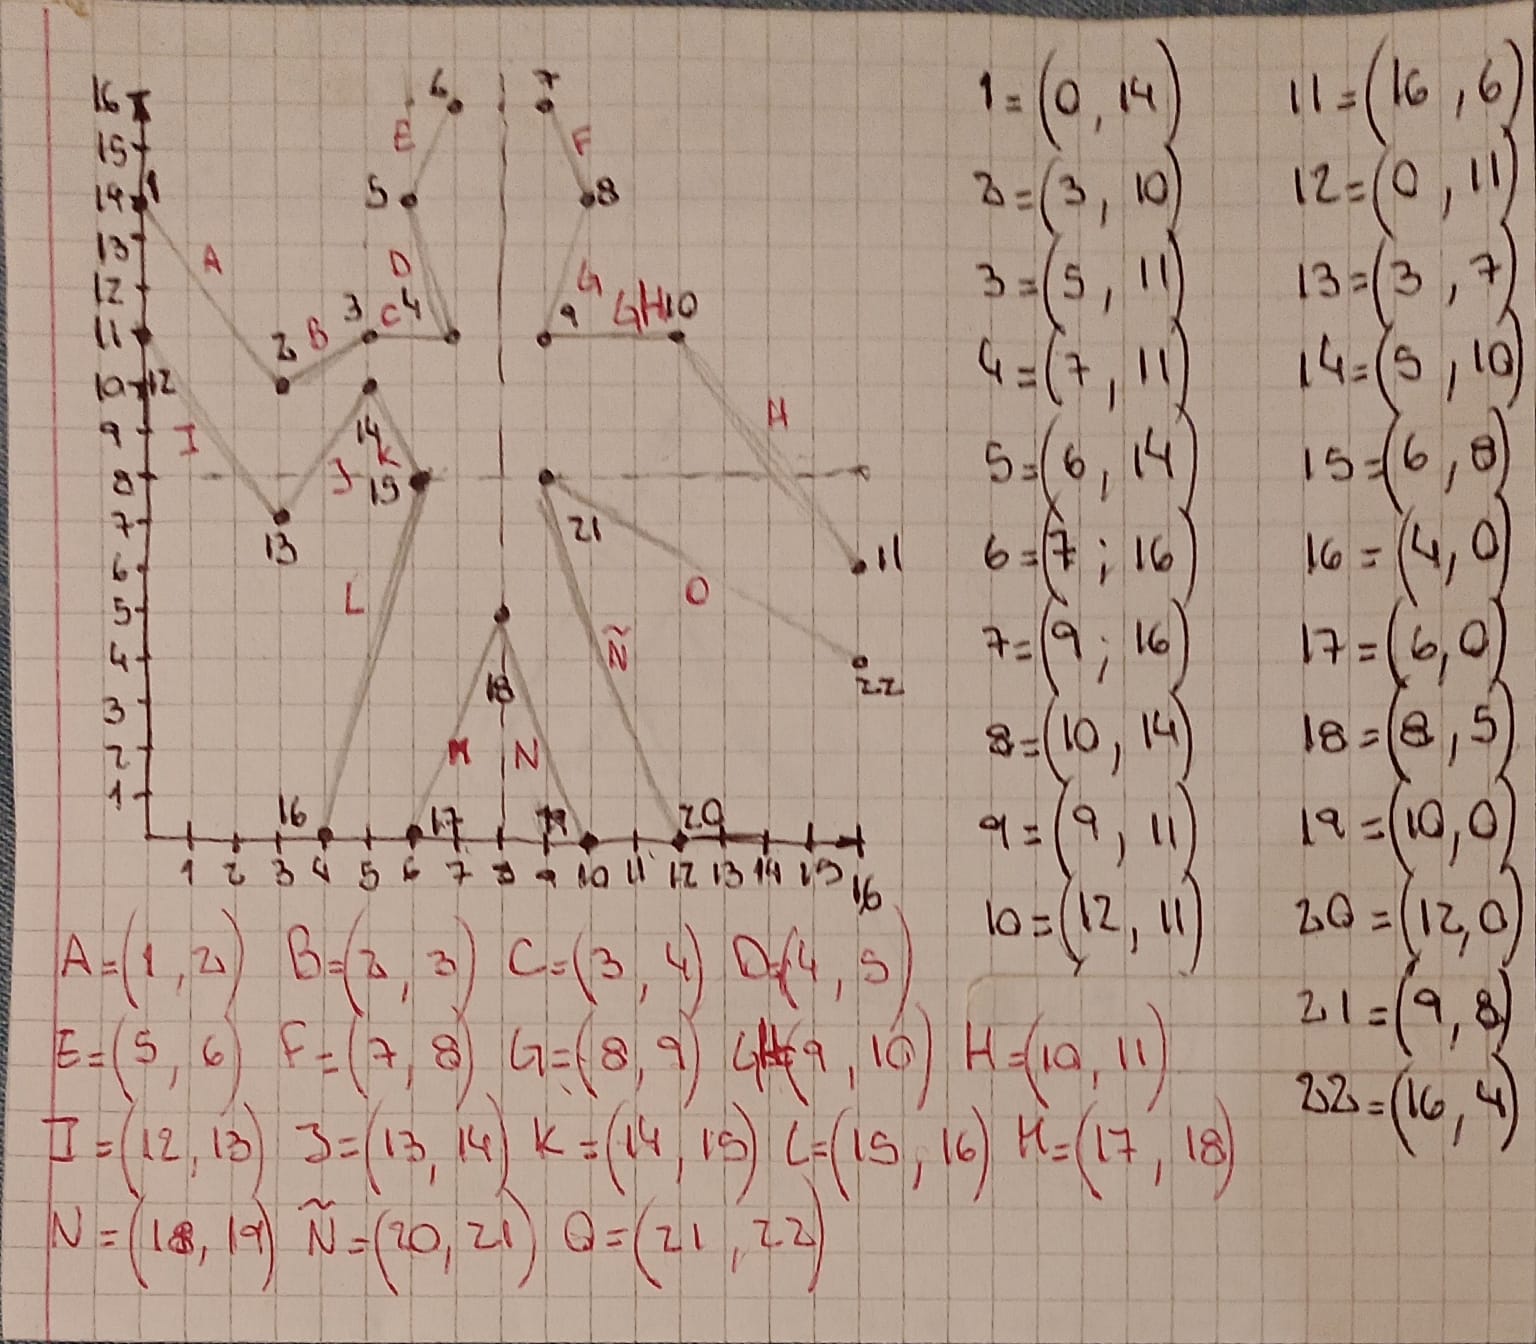 16
15
14
13
12
11
10
9
8
7
6
5
4
3
2
1
1 2 3 4 5 6 7 8 9 10 11 12 13 14 15 16
6 7
E F
1 5 8
A D G
3 C 4 9 GH 10
2 B
12
I 14 H
J K
15
13 21
11
L O
Ñ
18 22
M N
16 17 19 20
1=(0,14)
2=(3,10)
3=(5,11)
4=(7,11)
5=(6,14)
6=(7;16)
7=(9;16)
8=(10,14)
9=(9,11)
10=(12,11)
11=(16,6)
12=(0,11)
13=(3,7)
14=(5,10)
15=(6,8)
16=(4,0)
17=(6,0)
18=(8,5)
19=(10,0)
20=(12,0)
21=(9,8)
22=(16,4)
A=(1,2) B=(2,3) C=(3,4) D=(4,5)
E=(5,6) F=(7,8) G=(8,9) GH=(9,10) H=(10,11)
I=(12,13) J=(13,14) K=(14,15) L=(15,16) M=(17,18)
N=(18,19) Ñ=(20,21) O=(21,22)